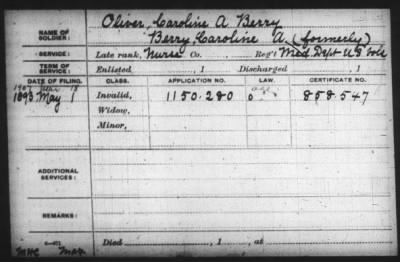 NAME OF SOLDIER:
Oliver, Caroline A. Berry
Berry, Caroline A. (formerly)
SERVICE:
Late rank, Nurse Co. Reg't Med Dept U S Vols
TERM OF SERVICE:
Enlisted , 1 Discharged , 1
DATE OF FILING. CLASS. APPLICATION NO. LAW. CERTIFICATE NO.
1893 May 1 Invalid, 1150.280 858.547
Widow,
Minor,
ADDITIONAL SERVICES:
REMARKS:
Died , 1 , at